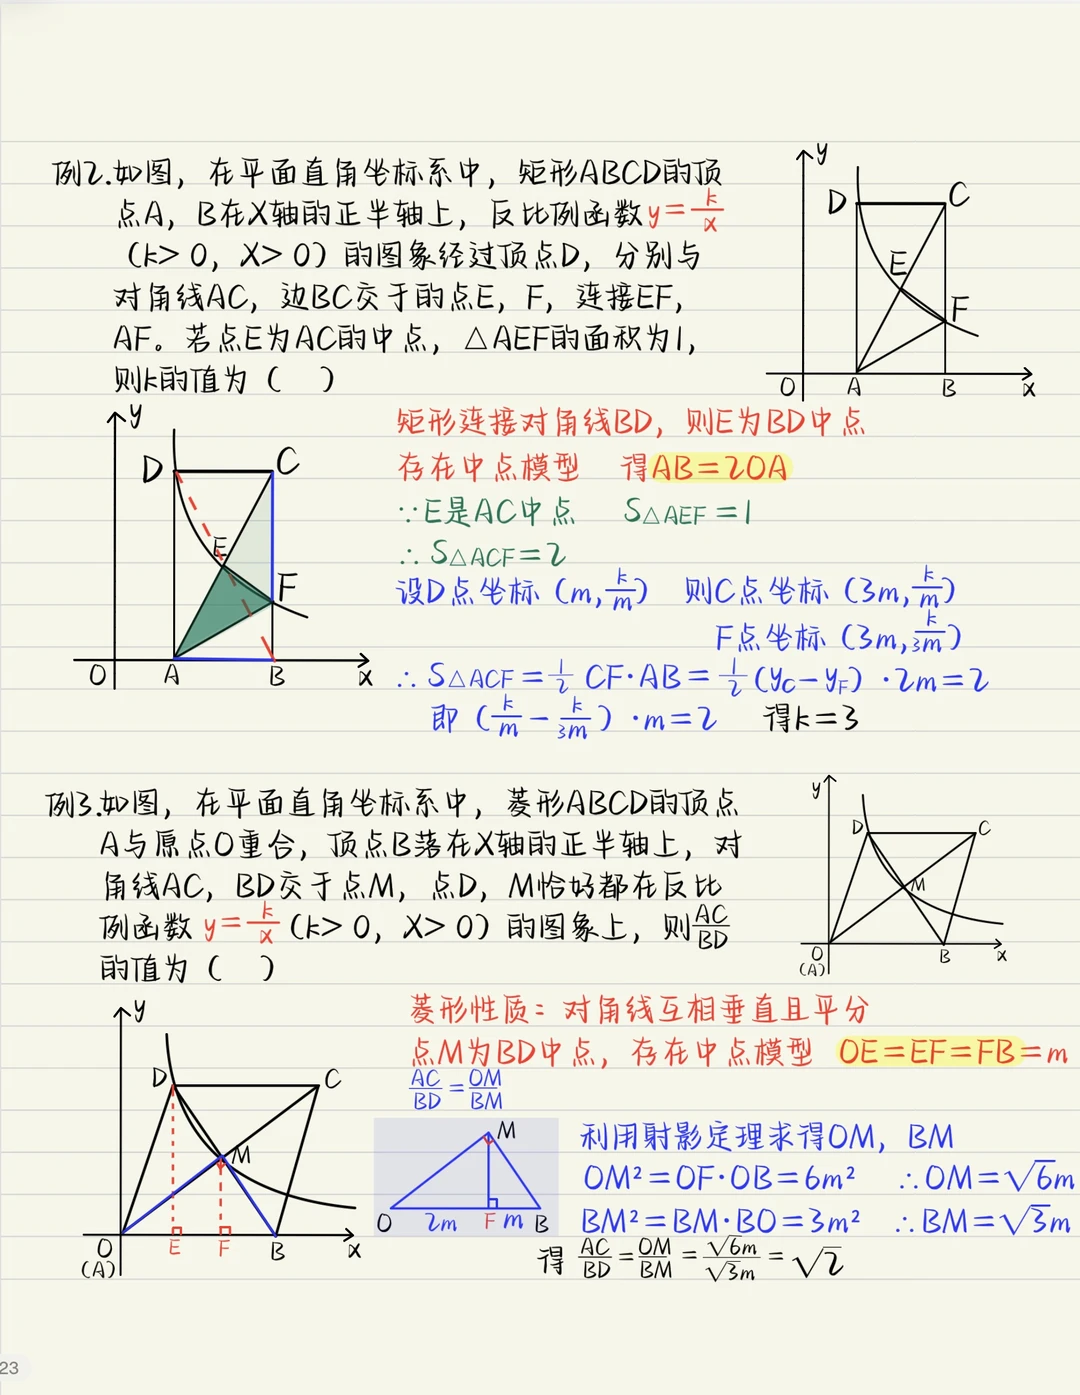 例2.如图，在平面直角坐标系中，矩形ABCD的顶
点A，B在X轴的正半轴上，反比例函数y=k/x
（k>0，X>0）的图象经过顶点D，分别与
对角线AC，边BC交于的点E，F，连接EF，
AF。若点E为AC的中点，△AEF的面积为1，
则k的值为（ ）
y
D C
E
F
O A B x
y
D C
E
F
O A B x
矩形连接对角线BD，则E为BD中点
存在中点模型 得AB=2OA
∵E是AC中点 S△AEF=1
∴S△ACF=2
设D点坐标（m,k/m） 则C点坐标（3m,k/m）
F点坐标（3m,k/3m）
∴S△ACF=1/2 CF·AB=1/2（yC-yF）·2m=2
即（k/m-k/3m）·m=2 得k=3
例3.如图，在平面直角坐标系中，菱形ABCD的顶点
A与原点O重合，顶点B落在X轴的正半轴上，对
角线AC，BD交于点M，点D，M恰好都在反比
例函数y=k/x（k>0，X>0）的图象上，则AC/BD
的值为（ ）
y
D C
M
O B x
(A)
y
D C
M
O E F B x
(A)
菱形性质：对角线互相垂直且平分
点M为BD中点，存在中点模型 OE=EF=FB=m
AC/BD=OM/BM
M
O 2m F m B
利用射影定理求得OM，BM
OM²=OF·OB=6m² ∴OM=√6m
BM²=BM·BO=3m² ∴BM=√3m
得 AC/BD=OM/BM=√6m/√3m=√2
23